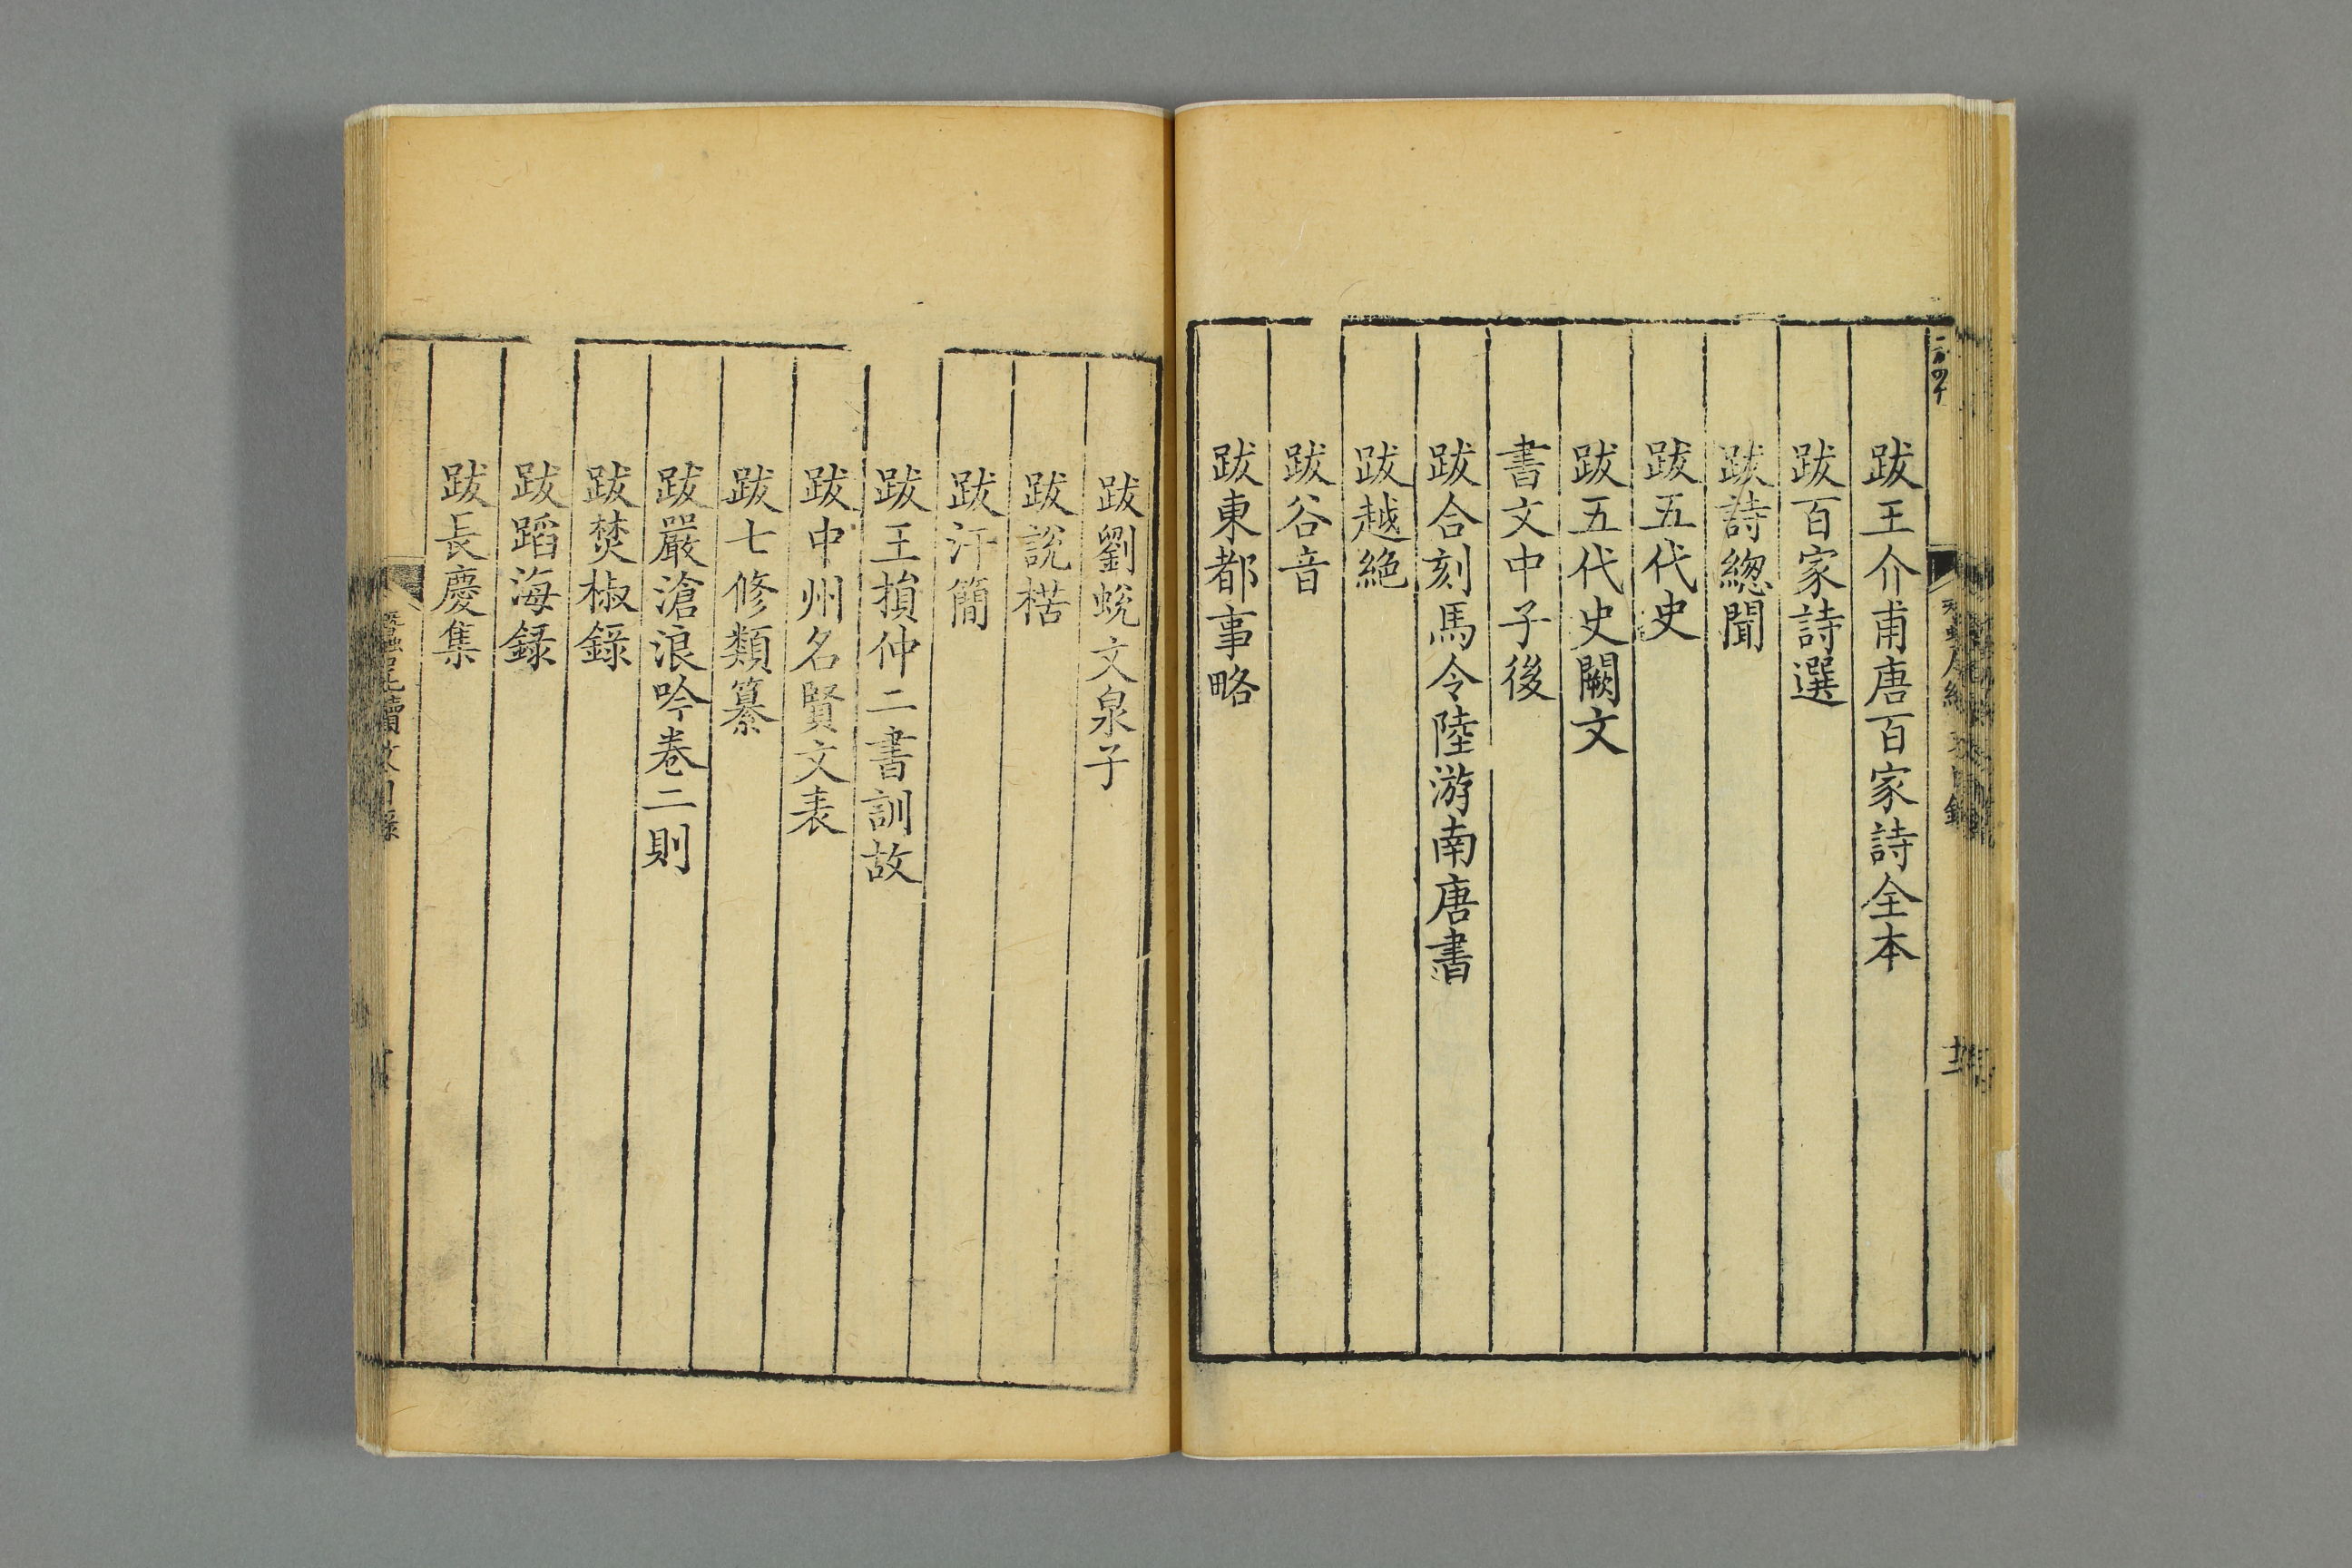 跋王介甫唐百家詩全本
跋百家詩選
跋詩緫聞
跋五代史
跋五代史闕文
書文中子後
跋合刻馬令陸游南唐書
跋越絕
跋谷音
跋東都事略
跋劉蛻文泉子
跋說楛
跋汗簡
跋王損仲二書訓故
跋中州名賢文表
跋七修類纂
跋嚴滄浪吟卷二則
跋焚椒錄
跋蹈海録
跋長慶集